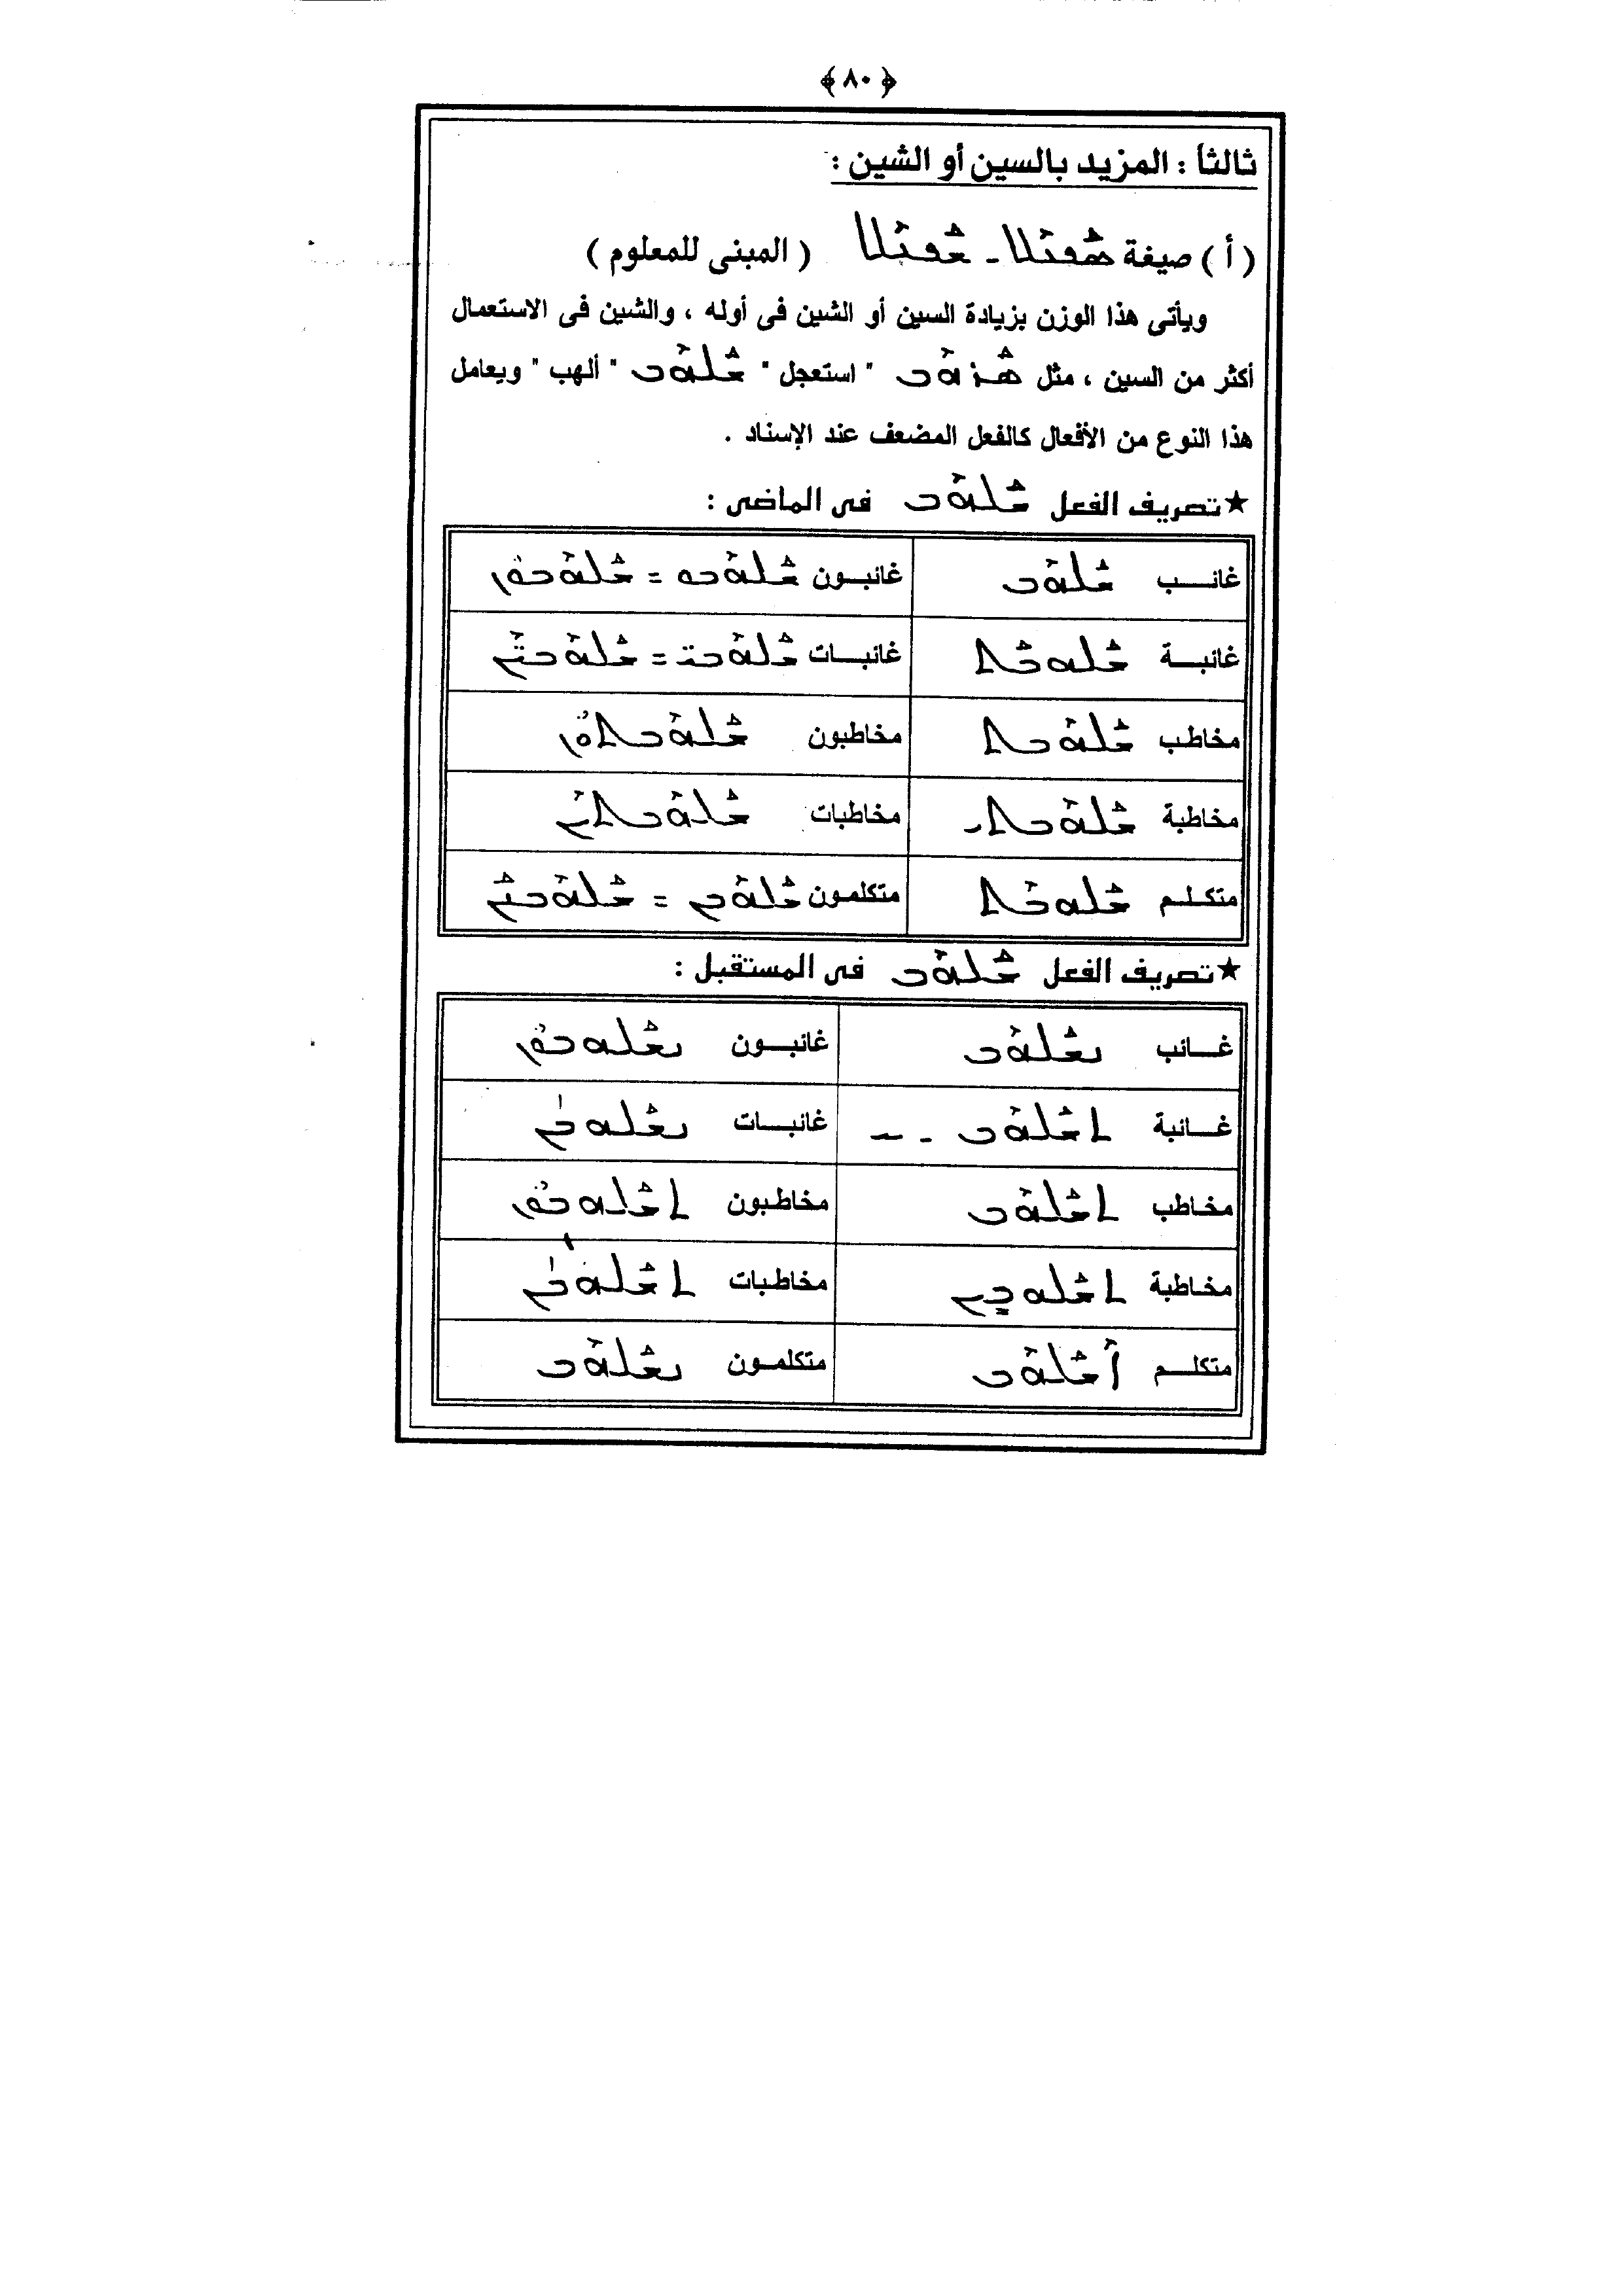 ﴿ ٨٠ ﴾
ثالثاً : المزيد بالسين أو الشين :
( أ ) صيغة ܣܰܦܥܶܠ ـ ܫܰܦܥܶܠ ( المبنى للمعلوم )
ويأتى هذا الوزن بزيادة السين أو الشين فى أوله ، والشين فى الاستعمال
أكثر من السين ، مثل ܣܰܪܗܶܒ " استعجل " ܫܰܠܗܶܒ " ألهب " ويعامل
هذا النوع من الأفعال كالفعل المضعف عند الإسناد .
★ تصريف الفعل ܫܰܠܗܶܒ فى الماضى :
غائب ܫܰܠܗܶܒ غائبون ܫܰܠܗܶܒܘ = ܫܰܠܗܶܒܘܽܢ
غائبة ܫܰܠܗܒܰܬ غائبات ܫܰܠܗܶܒ̈ܝ = ܫܰܠܗܶܒ̈ܶܝܢ
مخاطب ܫܰܠܗܶܒܬ مخاطبون ܫܰܠܗܶܒܬܘܽܢ
مخاطبة ܫܰܠܗܶܒܬܝ مخاطبات ܫܰܠܗܶܒܬܶܝܢ
متكلم ܫܰܠܗܒܶܬ متكلمون ܫܰܠܗܶܒܢ = ܫܰܠܗܶܒܢܰܢ
★ تصريف الفعل ܫܰܠܗܶܒ فى المستقبل :
غائب ܢܫܰܠܗܶܒ غائبون ܢܫܰܠܗܒܘܽܢ
غائبة ܬܫܰܠܗܶܒ - -- غائبات ܢܫܰܠܗܒܳܢ
مخاطب ܬܫܰܠܗܶܒ مخاطبون ܬܫܰܠܗܒܘܽܢ
مخاطبة ܬܫܰܠܗܒܝܼܢ مخاطبات ܬܫܰܠܗܒܳܢ
متكلم ܐܶܫܰܠܗܶܒ متكلمون ܢܫܰܠܗܶܒ